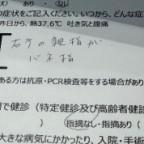 症状をご記入ください。いつから、どんな症
昨日から、熱37.6℃ 吐き気と腹痛
右手の親指が
ある方は抗原・PCR検査等をする場合があり
で健診(特定健診及び高齢者健診
指摘なし・指摘あり(
大きな病気にかかったり、入院・手術